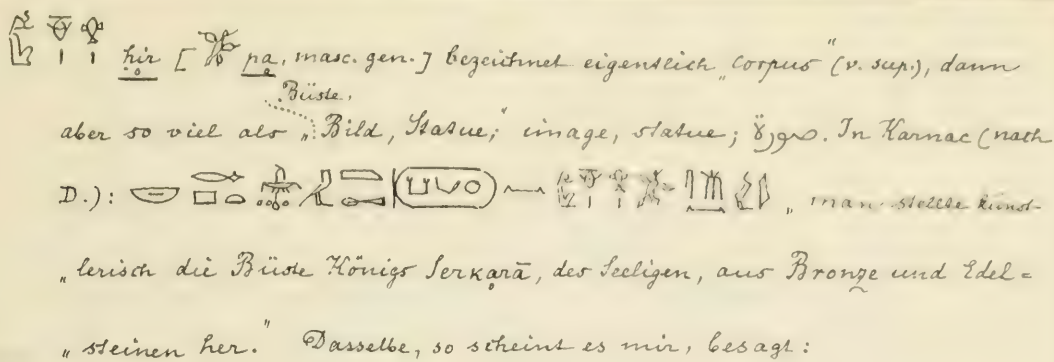 hir [ pa, masc. gen.] bezeichnet eigentlich „corpus“ (v. sup.), dann
Büste,
aber so viel als „Bild, Statue;“ image, statue; صورة. In Karnac (nach
D.): „man stellte künst-
„lerisch die Büste Königs Serkarā, des Seeligen, aus Bronze und Edel=
„steinen her.“ Dasselbe, so scheint es mir, besagt: